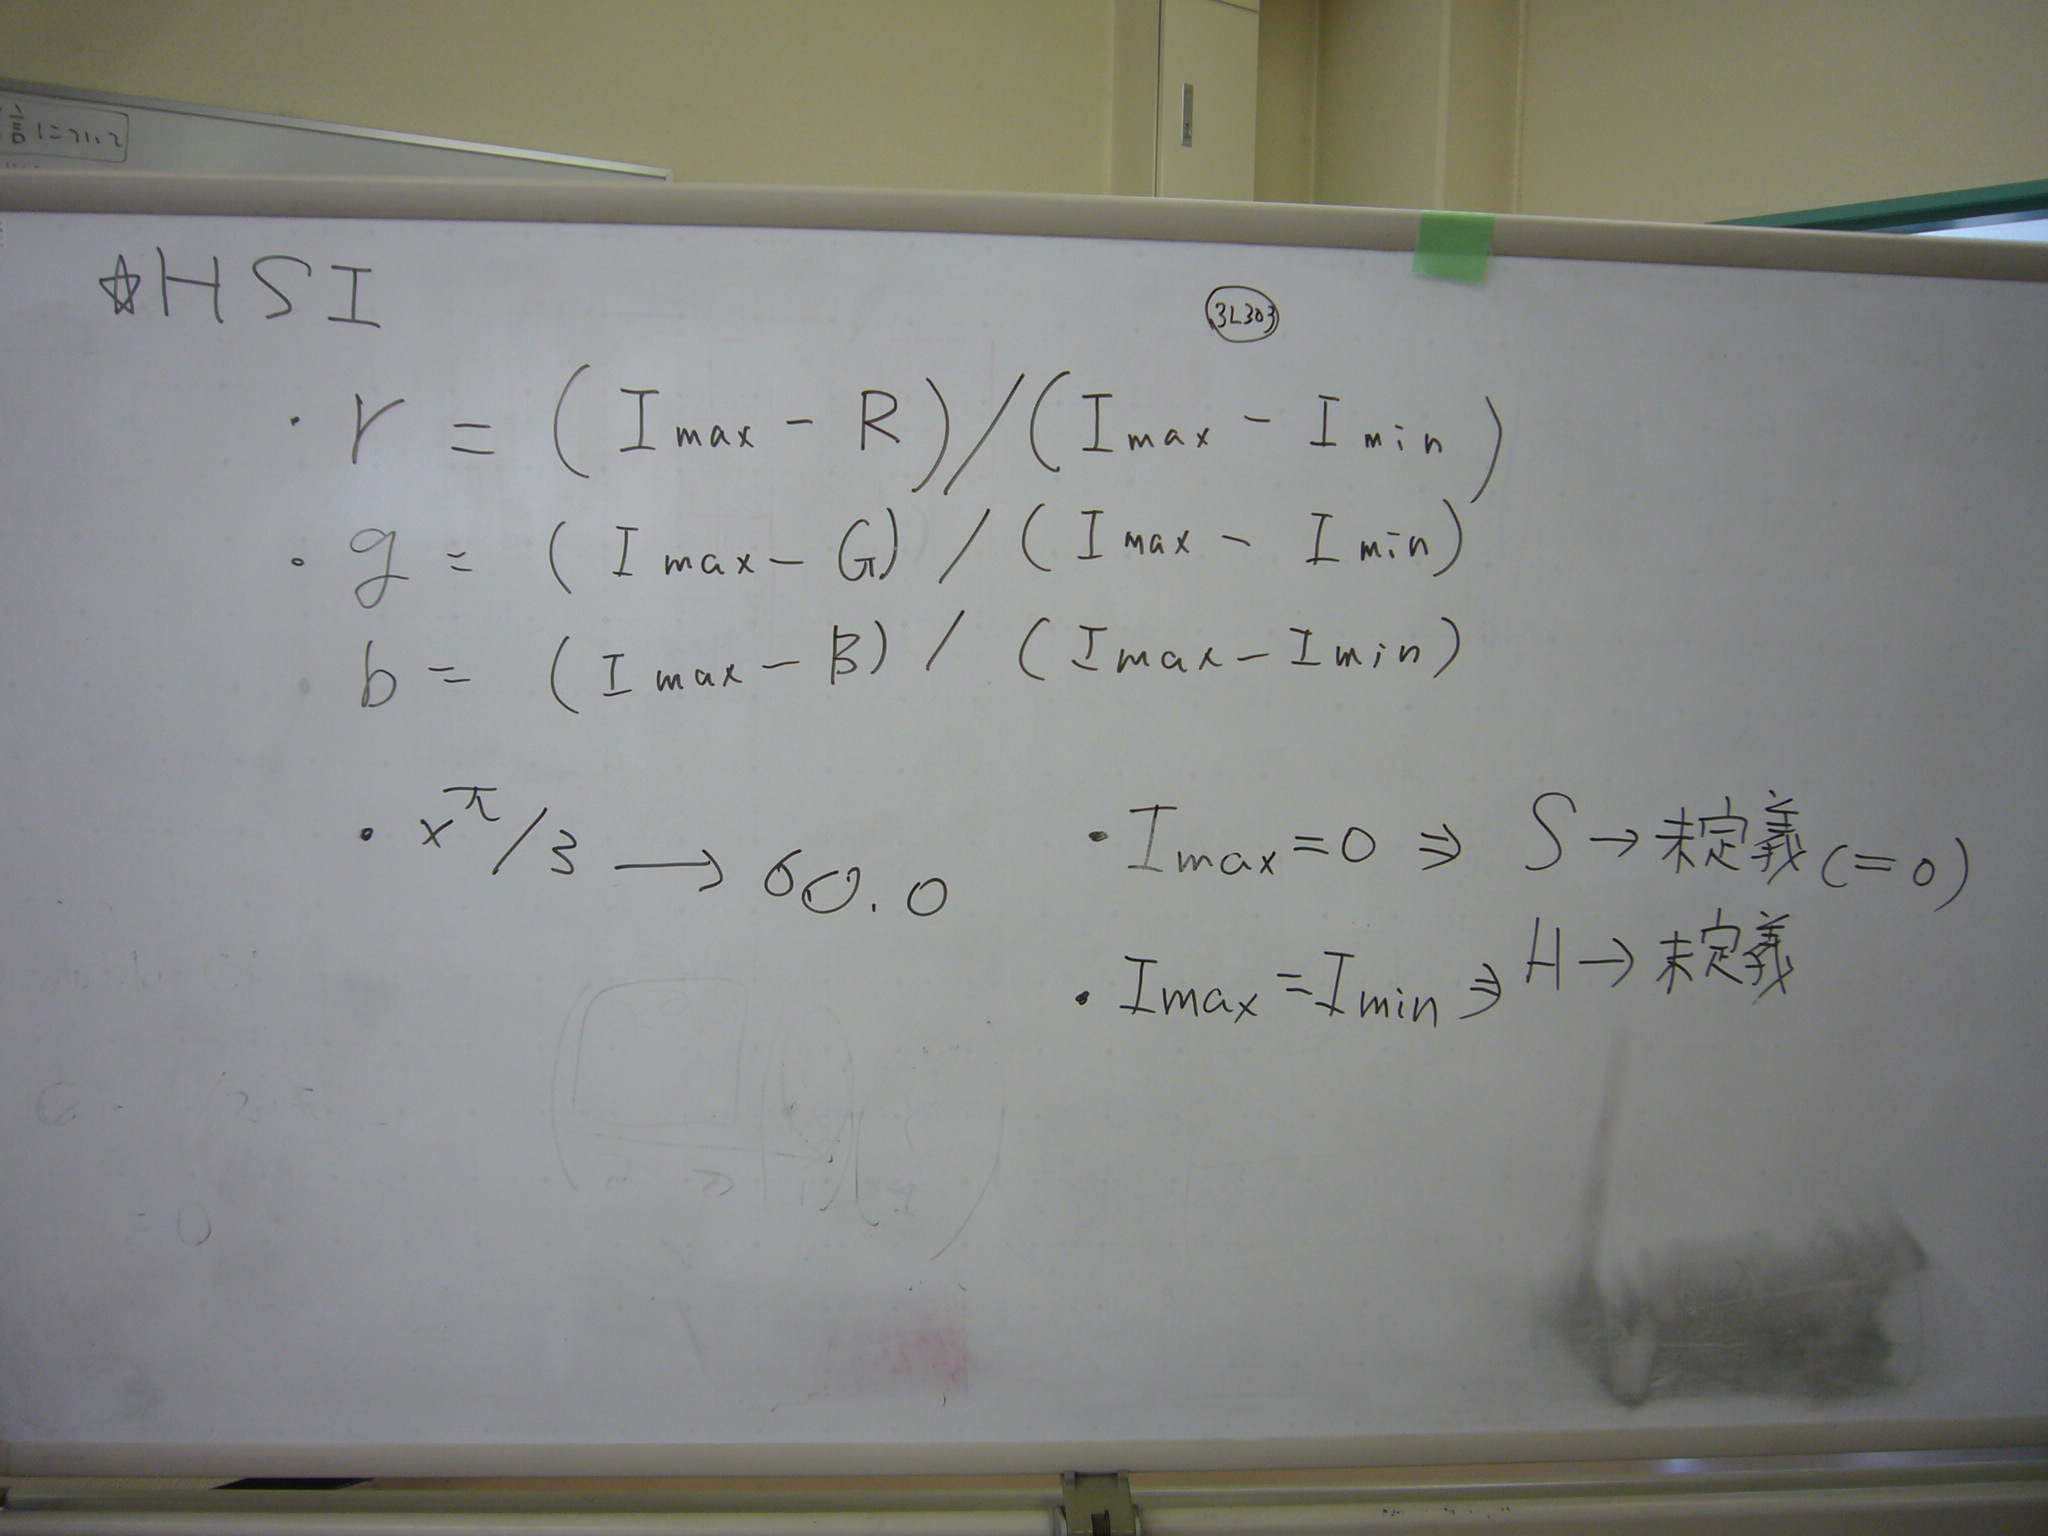 言について
☆HSI
3L303
・r = (Imax - R)/(Imax - Imin)
・g = (Imax - G)/(Imax - Imin)
・b = (Imax - B)/(Imax - Imin)
・xπ/3 → 60.0
・Imax = 0 ⇒ S → 未定義(=0)
・Imax = Imin ⇒ H → 未定義